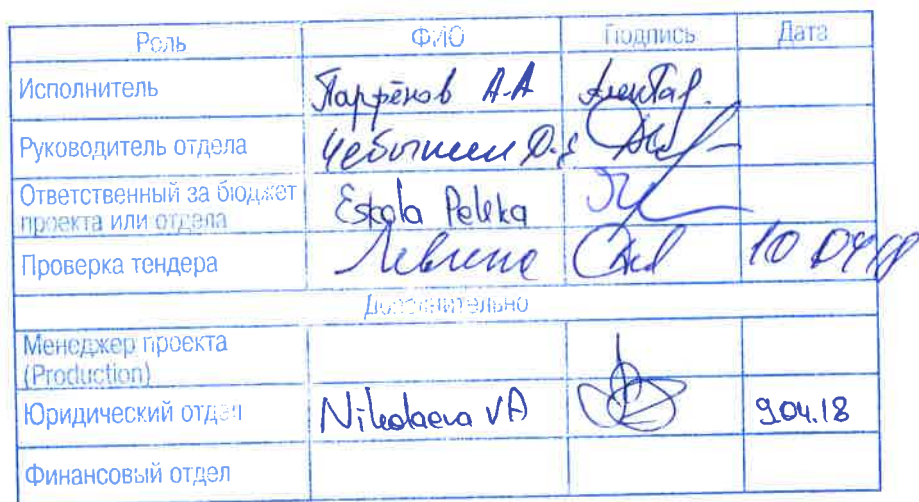 Роль ФИО Подпись Дата
Исполнитель Парфёнов А.А
Руководитель отдела Чебыкин
Ответственный за бюджет
проекта или отдела Eskola Pekka
Проверка тендера Левина 10 04 18
Дополнительно
Менеджер проекта
(Production)
Юридический отдел Nikolaeva VA 9.04.18
Финансовый отдел